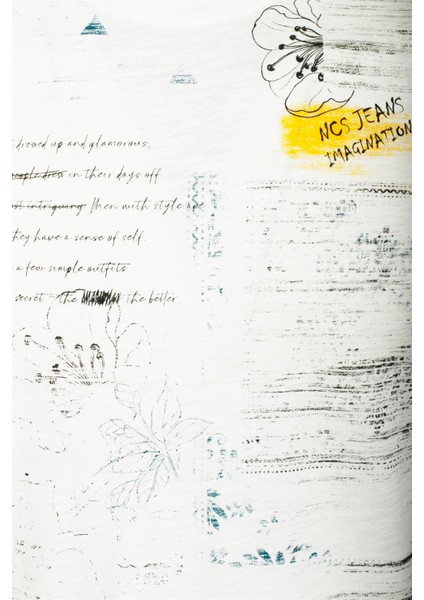 NCS JEANS
IMAGINATION
dressed up and glamorous,
people dress in their days off
not intriguing. Men with style are
they have a sense of self
a few simple outfits
secret - the the better